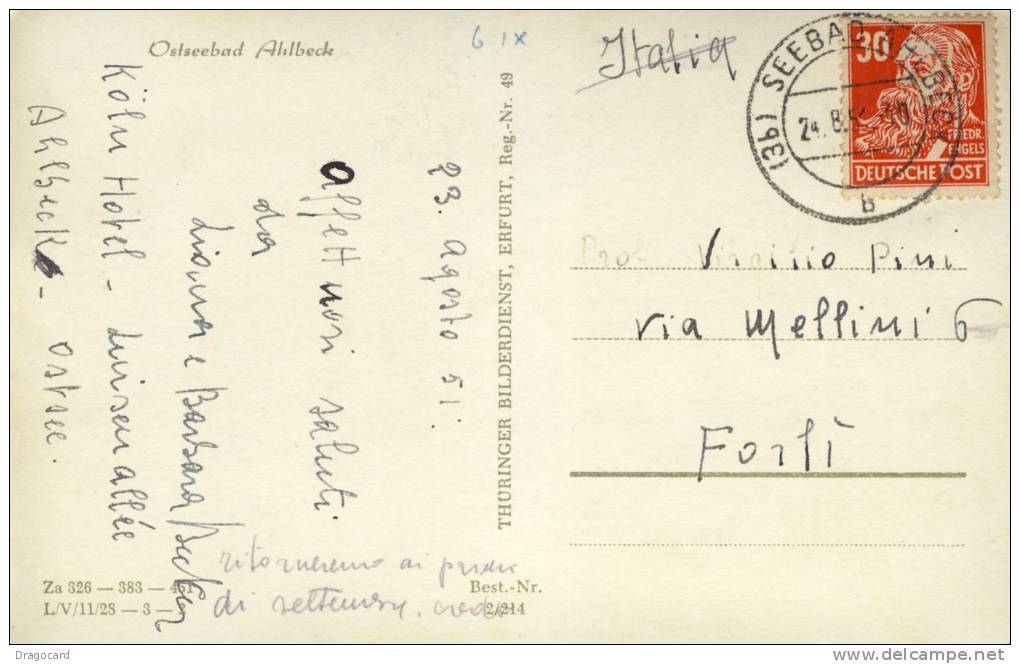 Ostseebad Ahlbeck
6 IX
Italia
(3b) SEEBAD AHLBECK
24.8.51
b
30
FRIEDR.
ENGELS
DEUTSCHE POST
23. Agosto 51.
Affettuosi saluti
da
e Barbara
Köln Hotel - Luisenallée
Ahlbeck - Ostsee.
ritorneremo ai primi
di settembre, credo
THÜRINGER BILDERDIENST, ERFURT, Reg.-Nr. 49
Prof. Virgilio Pini
via Mellini 6
Forlì
Za 326 — 383 — 451
L/V/11/28 — 3 —
Best.-Nr.
2/214
Dragocard
www.delcampe.net